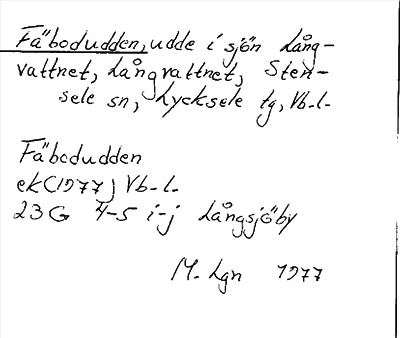 Fäbodudden, udde i sjön Lång-
vattnet, Långvattnet, Sten-
sele sn, Lycksele tg, Vb-l.
Fäbodudden
ek (1977) Vb-l.
23G 4-5 i-j Långsjöby
M. Lgn 1977